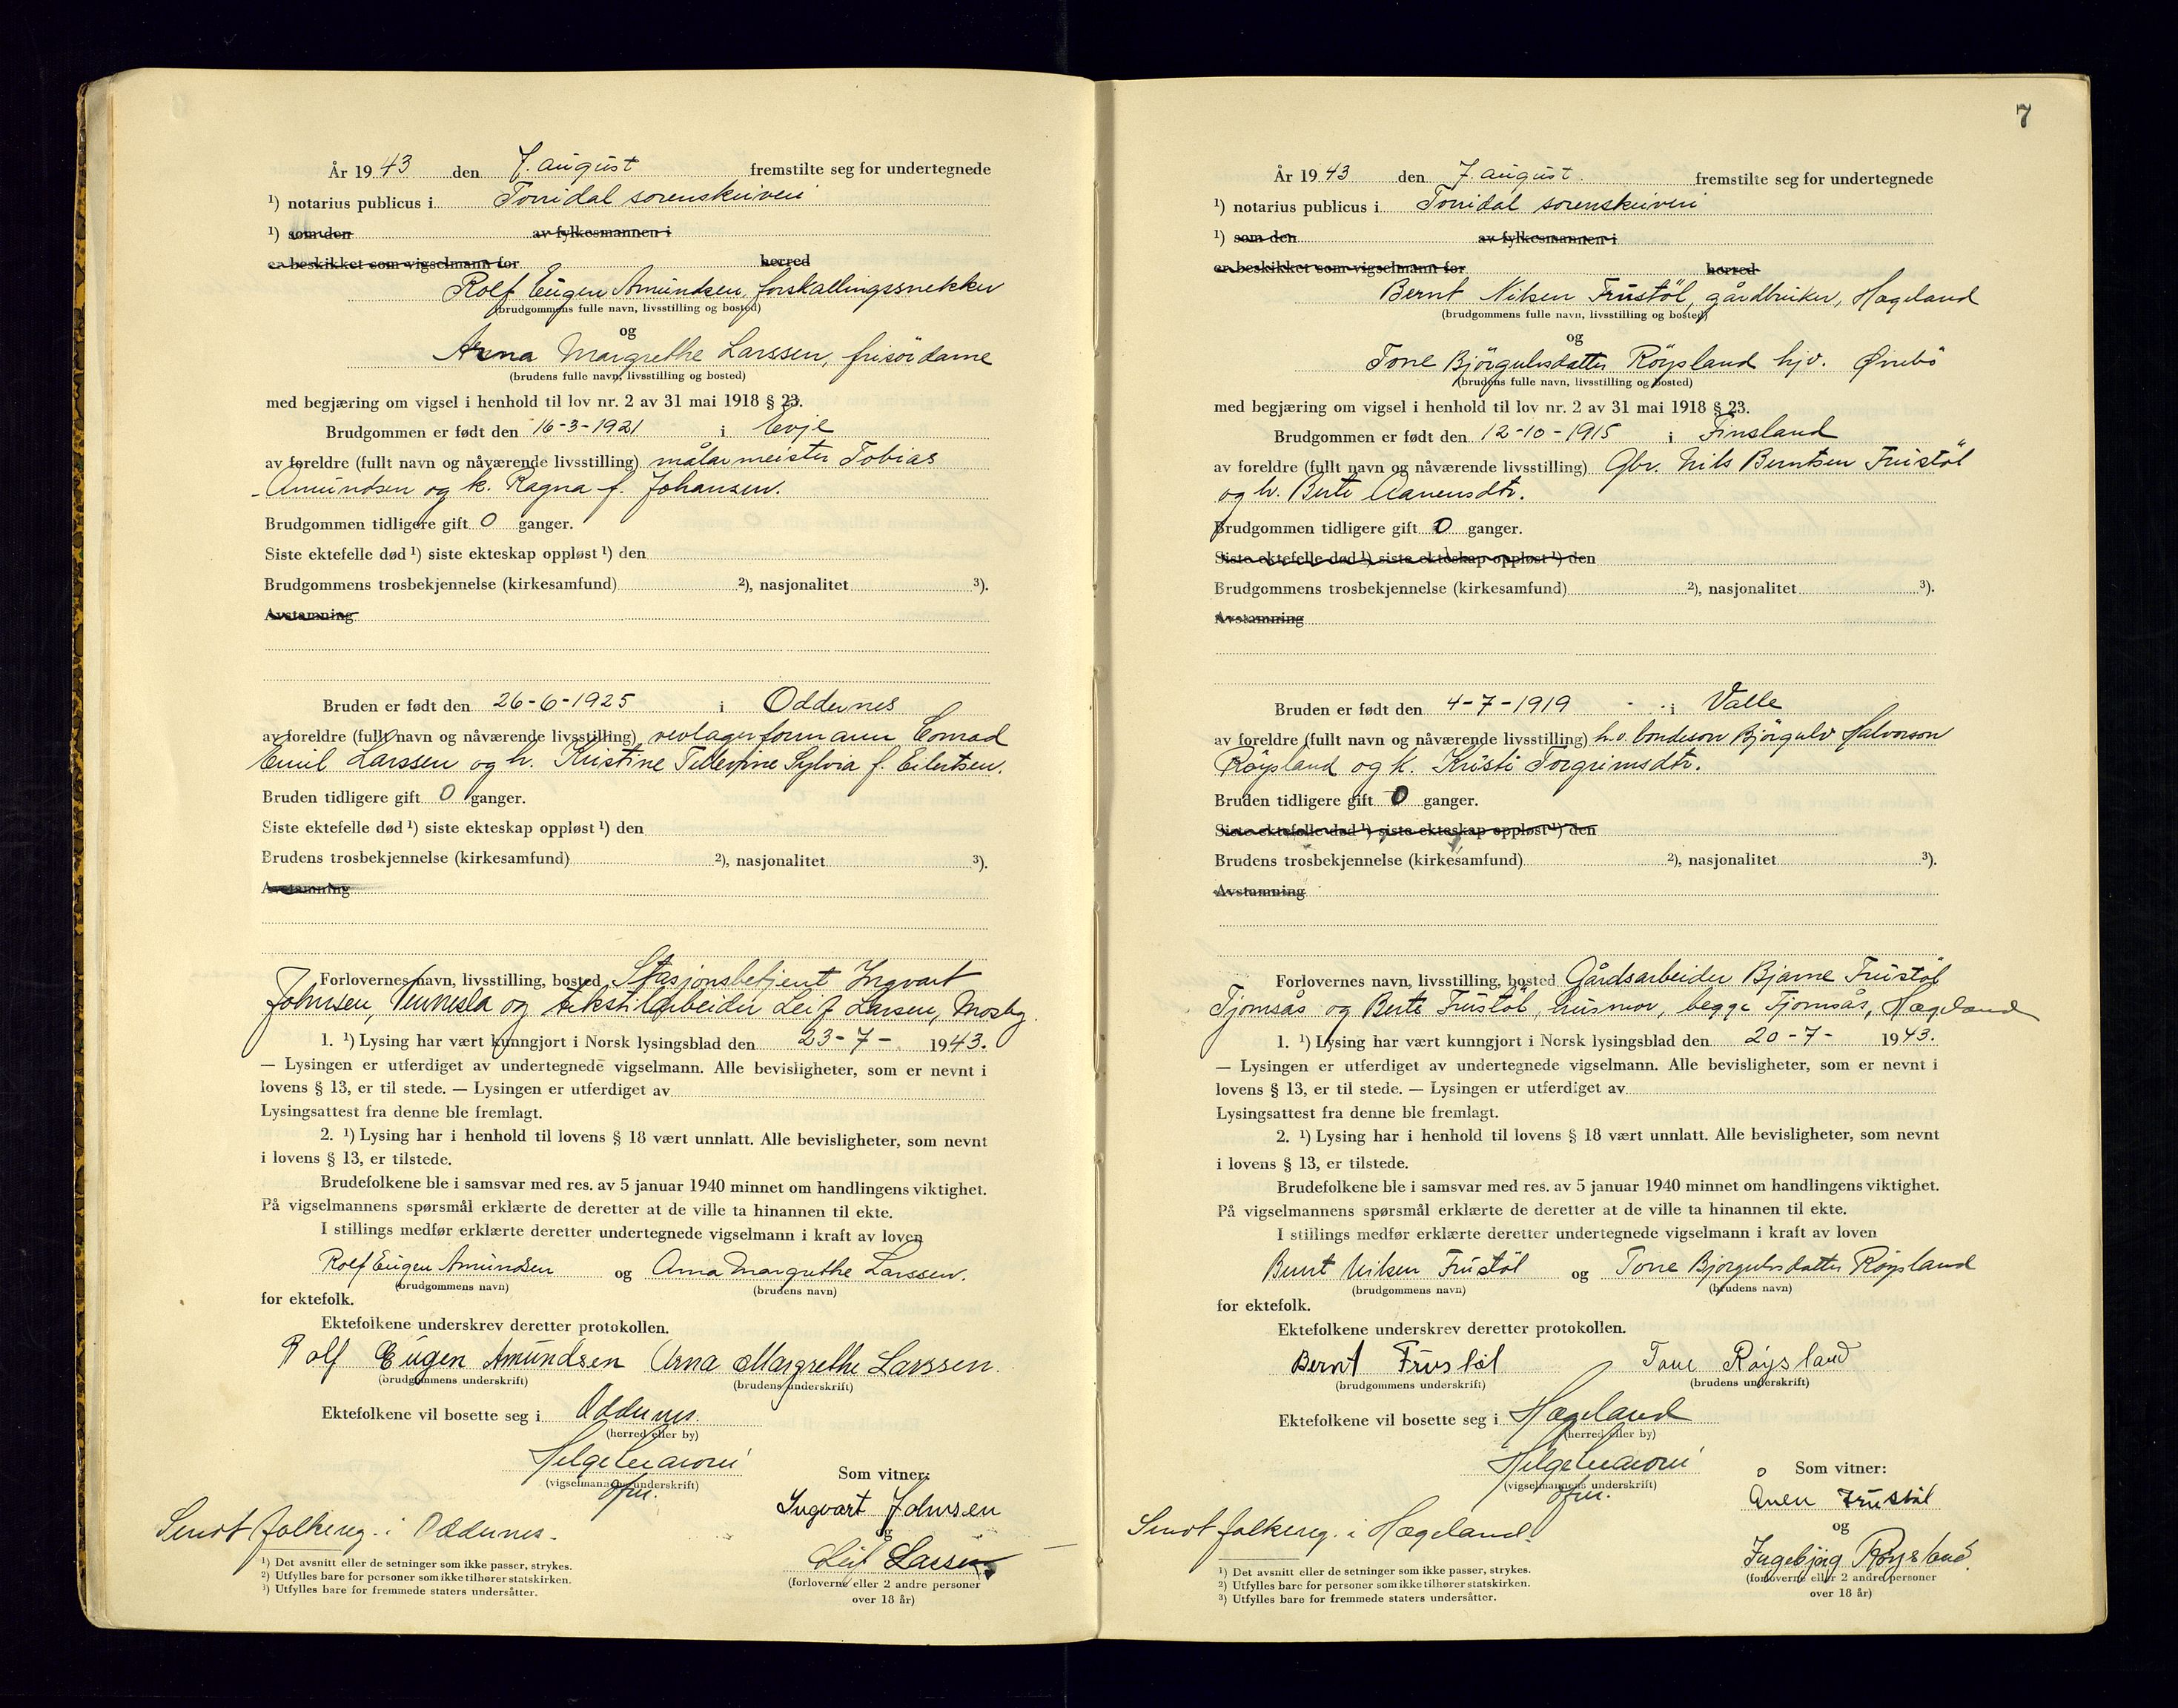 År 1943 den 7. august fremstilte seg for undertegnede
¹) notarius publicus i Torridal sorenskriveri
¹) som den av fylkesmannen i
er beskikket som vigselmann for herred
Rolf Eugen Amundsen, forskallingssnekker
(brudgommens fulle navn, livsstilling og bosted)
og
Arna Margrethe Larssen, frisördame
(brudens fulle navn, livsstilling og bosted)
med begjæring om vigsel i henhold til lov nr. 2 av 31 mai 1918 § 23.
Brudgommen er født den 16-3-1921 i Evje
av foreldre (fullt navn og nåværende livsstilling) målarmeister Tobias
Amundsen og k. Ragna f. Johansen.
Brudgommen tidligere gift 0 ganger.
Siste ektefelle død ¹) siste ekteskap oppløst ¹) den
Brudgommens trosbekjennelse (kirkesamfund) ²), nasjonalitet ³).
Avstamning
Bruden er født den 26-6-1925 i Oddernes
av foreldre (fullt navn og nåværende livsstilling) Conrad
Emil Larssen og h. Kristine Sylvia f. Eilertsen.
Bruden tidligere gift 0 ganger.
Siste ektefelle død ¹) siste ekteskap oppløst ¹) den
Brudens trosbekjennelse (kirkesamfund) ²), nasjonalitet ³).
Avstamning
Forlovernes navn, livsstilling, bosted Stasjonsbetjent Ingvart
Johnsen, Vennesla og tekstilarbeider Leif Larsen, Mosby.
1. ¹) Lysing har vært kunngjort i Norsk lysingsblad den 23-7- 1943.
— Lysingen er utferdiget av undertegnede vigselmann. Alle bevisligheter, som er nevnt i
lovens § 13, er til stede. — Lysingen er utferdiget av
Lysingsattest fra denne ble fremlagt.
2. ¹) Lysing har i henhold til lovens § 18 vært unnlatt. Alle bevisligheter, som nevnt
i lovens § 13, er tilstede.
Brudefolkene ble i samsvar med res. av 5 januar 1940 minnet om handlingens viktighet.
På vigselmannens spørsmål erklærte de deretter at de ville ta hinannen til ekte.
I stillings medfør erklærte deretter undertegnede vigselmann i kraft av loven
Rolf Eugen Amundsen og Arna Margrethe Larssen.
(brudgommens navn) (brudens navn)
for ektefolk.
Ektefolkene underskrev deretter protokollen.
Rolf Eugen Amundsen Arna Margrethe Larssen.
(brudgommens underskrift) (brudens underskrift)
Ektefolkene vil bosette seg i Oddernes.
(herred eller by)
(vigselmannens underskrift)
Som vitner:
Ingvart Johnsen
og
Leif Larsen
(forloverne eller 2 andre personer
over 18 år)
Sendt folkereg. i Oddernes.
¹) Det avsnitt eller de setninger som ikke passer, strykes.
²) Utfylles bare for personer som ikke tilhører statskirken.
³) Utfylles bare for fremmede staters undersåtter.
7
År 1943 den 7. august. fremstilte seg for undertegnede
¹) notarius publicus i Torridal sorenskriveri
¹) som den av fylkesmannen i
er beskikket som vigselmann for herred
Bernt Nilsen Frustöl, gårdbruker, Hægeland
(brudgommens fulle navn, livsstilling og bosted)
og
Tone Björgulvsdatter Röysland hjv. Øvrebö
(brudens fulle navn, livsstilling og bosted)
med begjæring om vigsel i henhold til lov nr. 2 av 31 mai 1918 § 23.
Brudgommen er født den 12-10-1915 i Finsland
av foreldre (fullt navn og nåværende livsstilling) Gbr. Nils Berntsen Frustöl
og h. Berte Aanensdtr.
Brudgommen tidligere gift 0 ganger.
Siste ektefelle død ¹) siste ekteskap oppløst ¹) den
Brudgommens trosbekjennelse (kirkesamfund) ²), nasjonalitet ³).
Avstamning
Bruden er født den 4-7-1919 i Valle
av foreldre (fullt navn og nåværende livsstilling) h.v. bondeson Björgulv Halvorson
Röysland og k. Kristi Torgrimsdtr.
Bruden tidligere gift 0 ganger.
Siste ektefelle død ¹) siste ekteskap oppløst ¹) den
Brudens trosbekjennelse (kirkesamfund) ²), nasjonalitet ³).
Avstamning
Forlovernes navn, livsstilling, bosted Gårdsarbeider Bjarne Frustöl
Tjomsås og Berte Frustöl, husmor, begge Tjomsås, Hægeland
1. ¹) Lysing har vært kunngjort i Norsk lysingsblad den 20-7- 1943.
— Lysingen er utferdiget av undertegnede vigselmann. Alle bevisligheter, som er nevnt i
lovens § 13, er til stede. — Lysingen er utferdiget av
Lysingsattest fra denne ble fremlagt.
2. ¹) Lysing har i henhold til lovens § 18 vært unnlatt. Alle bevisligheter, som nevnt
i lovens § 13, er tilstede.
Brudefolkene ble i samsvar med res. av 5 januar 1940 minnet om handlingens viktighet.
På vigselmannens spørsmål erklærte de deretter at de ville ta hinannen til ekte.
I stillings medfør erklærte deretter undertegnede vigselmann i kraft av loven
Bernt Nilsen Frustöl og Tone Björgulvsdatter Röysland
(brudgommens navn) (brudens navn)
for ektefolk.
Ektefolkene underskrev deretter protokollen.
Bernt Frustöl Tone Röysland
(brudgommens underskrift) (brudens underskrift)
Ektefolkene vil bosette seg i Hægeland
(herred eller by)
(vigselmannens underskrift)
Som vitner:
Ånen Frustöl
og
Ingebjörg Röysland.
(forloverne eller 2 andre personer
over 18 år)
Sendt folkereg. i Hægeland.
¹) Det avsnitt eller de setninger som ikke passer, strykes.
²) Utfylles bare for personer som ikke tilhører statskirken.
³) Utfylles bare for fremmede staters undersåtter.